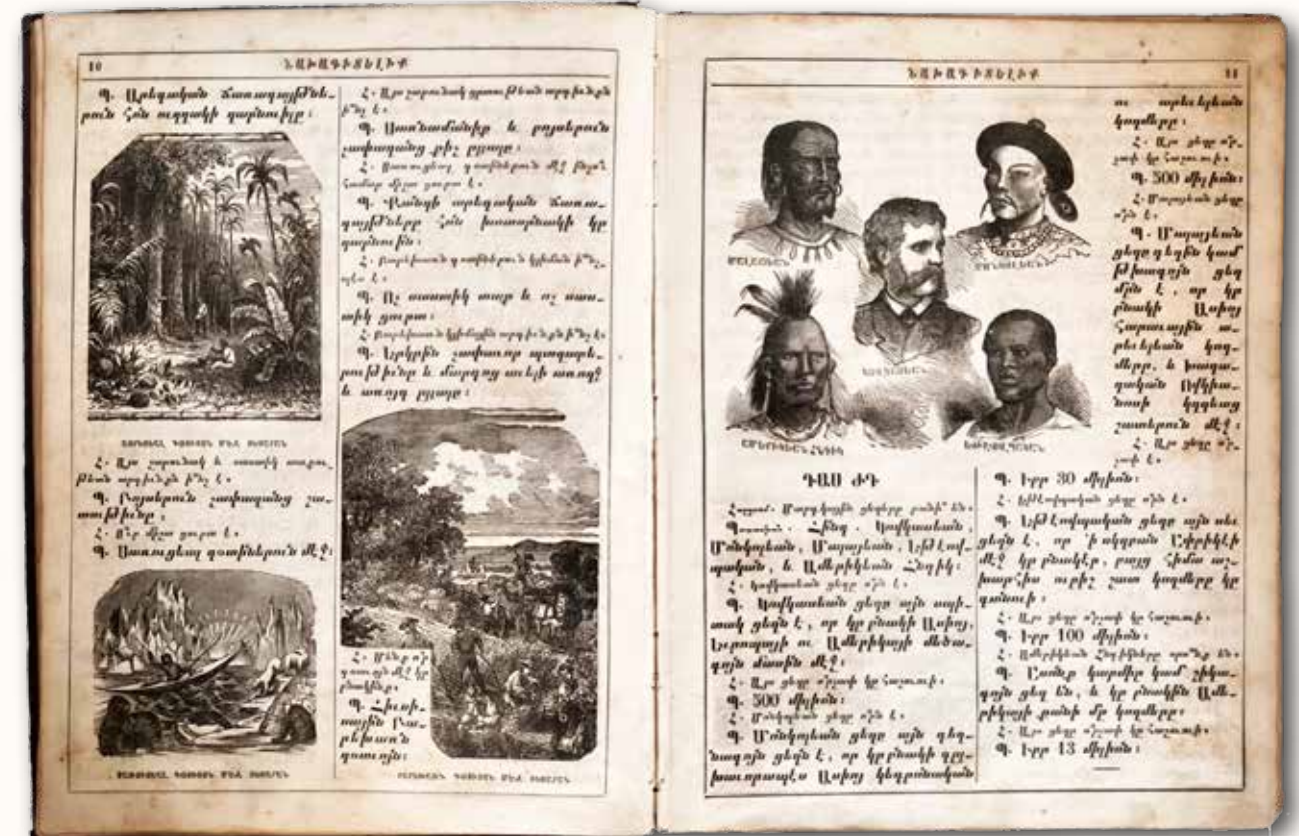 10
ՆԱԽԱԳԻՏԵԼԻՔ
Պ. Արեգական ճառագայթնե-
րուն հոն ուղղակի զարնուիլը։
Հ. Այս չարունակ և սաստիկ տաքու-
թեան արդիւնքն ի՞նչ է.
Պ. Բոյսերուն չափազանց շա-
տութիւնը.
Հ. Ո՞ւր միշտ ցուրտ է.
Պ. Սառուցեալ գօտիներուն մէջ։
Հ. Այս շարունակ ցրտութեան արդիւնքն
ի՞նչ է.
Պ. Սառնամանիք և բոյսերուն
չափազանց քիչ ըլլալը։
Հ. Սառուցեալ գօտիներուն մէջ ինչո՞ւ
համար միշտ ցուրտ է.
Պ. Քանզի արեգական ճառա-
գայթները հոն խոտորնակի կը
զարնուին։
Հ. Բարեխառն գօտիներուն կլիման ի՞նչ-
պէս է.
Պ. Ոչ սաստիկ տաք և ոչ սաս-
տիկ ցուրտ։
Հ. Բարեխառն կլիմային արդիւնքն ի՞նչ է.
Պ. Երկրին չափաւոր պտղաբե-
րութիւնը և մարդոց աւելի առողջ
և առոյգ ըլլալը։
Հ. Մենք ո՞ր
գօտւոյն մէջ կը
բնակինք.
Պ. Հիւսի-
սային Բա-
րեխառն
գօտւոյն։
ՆԱԽԱԳԻՏԵԼԻՔ
11
ՄԱԼԱՅԵԱՆ
ՄՈՆԿՈԼԵԱՆ
ԿՈՎԿԱՍԵԱՆ
ԱՄԵՐԻԿԵԱՆ ՀՆԴԻԿ
ԵԹԷՈՎՊԱԿԱՆ
ԴԱՍ ԺԴ
Հարցում. Մարդկային ցեղերը քանի՞ են.
Պատասխան. Հինգ. Կովկասեան,
Մոնկոլեան, Մալայեան, Եթէովպ-
պական, և Ամերիկեան Հնդիկ։
Հ. Կովկասեան ցեղը ո՞րն է.
Պ. Կովկասեան ցեղը այն սպի-
տակ ցեղն է, որ կը բնակի Ասիոյ,
Եւրոպայի ու Ամերիկայի մեծա-
գոյն մասին մէջ։
Հ. Այս ցեղը ո՞րչափ կը հաշուուի.
Պ. 500 միլիոն։
Հ. Մոնկոլեան ցեղը ո՞րն է.
Պ. Մոնկոլեան ցեղը այն դեղ-
նագոյն ցեղն է, որ կը բնակի գլը-
խաւորապէս Ասիոյ կեդրոնական
ու արեւելեան
կողմերը։
Հ. Այս ցեղը ո՞ր-
չափ կը հաշուուի.
Պ. 500 միլիոն։
Հ. Մալայեան ցեղը
ո՞րն է.
Պ. Մալայեան
ցեղը դեղին կամ
թխագոյն ցեղ
մըն է, որ կը
բնակի Ասիոյ
հարաւային ա-
րեւելեան կող-
մերը, և խաղա-
ղական Ովկիա-
նոսի կղզեաց
շատերուն մէջ։
Հ. Այս ցեղը ո՞ր-
չափ է.
Պ. Իբր 30 միլիոն։
Հ. Եթէովպական ցեղը ո՞րն է.
Պ. Եթէովպական ցեղը այն սեւ
ցեղն է, որ ՚ի սկզբան Ափրիկէի
մէջ կը բնակէր, բայց հիմա աշ-
խարհիս ուրիշ շատ կողմերը կը
գտնուի։
Հ. Այս ցեղը ո՞րչափ կը հաշուուի.
Պ. Իբր 100 միլիոն։
Հ. Ամերիկեան Հնդիկները որո՞նք են.
Պ. Ասոնք կարմիր կամ պղնձա-
գոյն ցեղ են, և կը բնակին Ամե-
րիկայի քանի մը կողմերը։
Հ. Այս ցեղը ո՞րչափ կը հաշուուի.
Պ. Իբր 13 միլիոն։